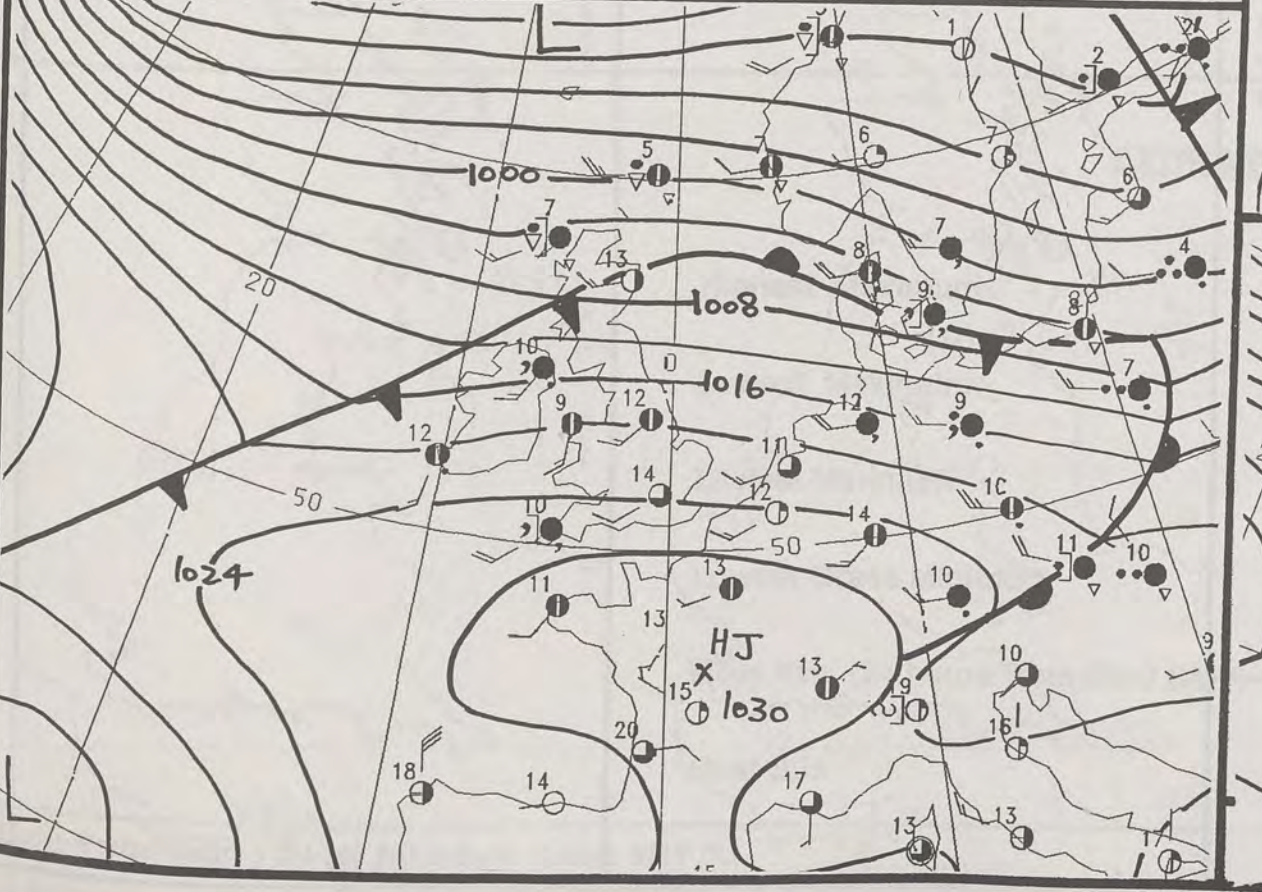 L
1
2
2
5
7
6
7
6
1000
7
13
8
7
4
20
9
1008
8
10
0
1016
7
9
12
12
9
12
11
14
12
10
50
10
14
50
11
10
1024
11
13
10
13
HJ
10
9
x
13
15
1030
19
16
20
18
14
17
13
13
L